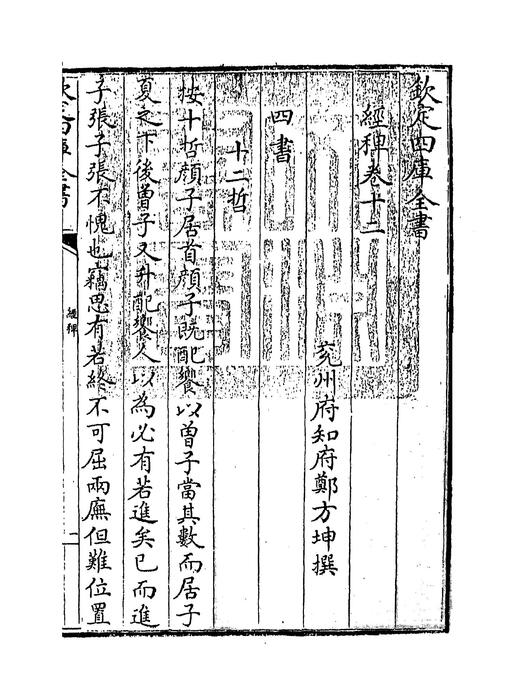 欽定四庫全書
經稗卷十二
兖州府知府鄭方坤撰
四書
十二哲
按十哲顔子居首顔子既配饗以曾子當其數而居子
夏之下後曾子又升配饗人以為必有若進矣已而進
子張子張不愧也竊思有若終不可屈兩廡但難位置
欽定四庫全書
經稗
一